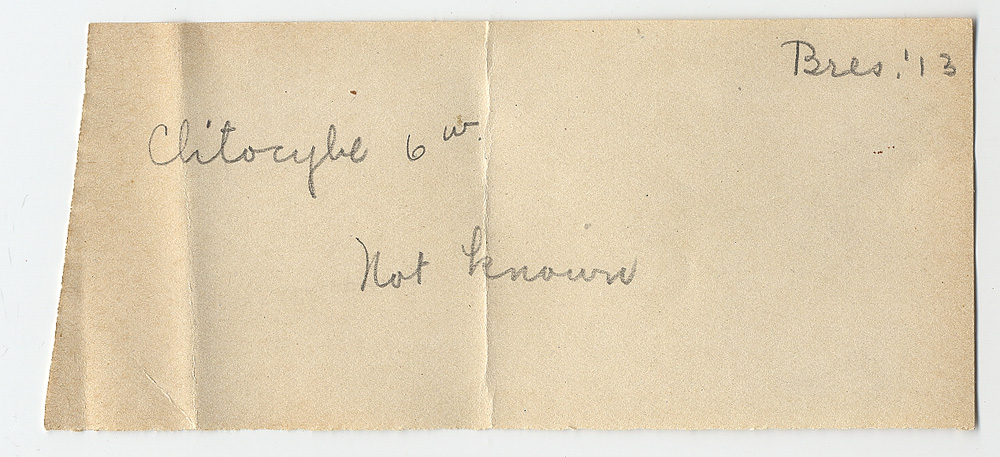 Bres. '13
Clitocybe 6 w.
Not known